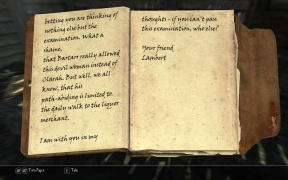 betting you are thinking of
nothing else but the
examination. What a
shame,
that Dartarr really allowed
this devil woman instead of
Clarah. But well, we all
know, that his
path-abiding is limited to
the daily walk to the liquor
merchant.
I am with you in my
thoughts - if you can't pass
this examination, who else?
Your friend
Lambert
Turn Page
Take